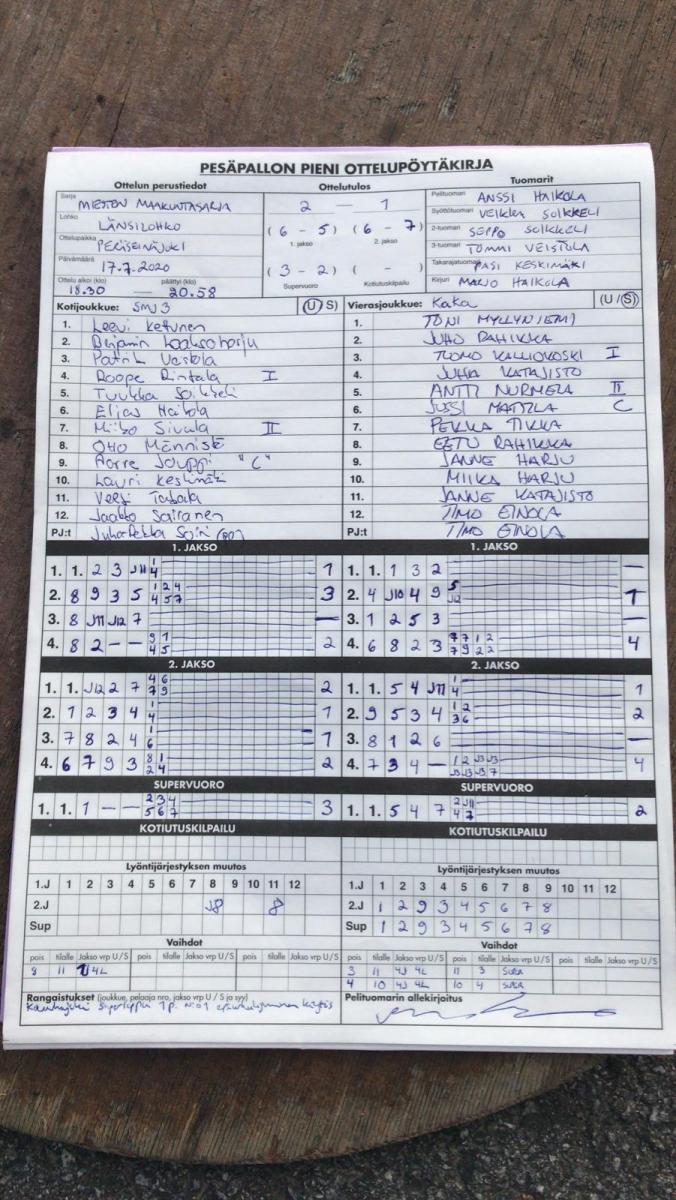 PESÄPALLON PIENI OTTELUPÖYTÄKIRJA
Ottelun perustiedot Ottelutulos Tuomarit
Sarja MIESTEN MAAKUNTASARJA
Lohko LÄNSILOHKO
Ottelupaikka PERÄSEINÄJOKI
Päivämäärä 17.7.2020
Ottelu alkoi (klo) päättyi (klo)
18.30 — 20.58
2 — 1
(6 - 5) (6 - 7)
1. jakso 2. jakso
(3 - 2) ( - )
Supervuoro Kotiutuskilpailu
Pelituomari ANSSI HAIKOLA
Syöttötuomari VEIKKA SOIKKELI
2-tuomari SEPPO SOIKKELI
3-tuomari TOMMI VEISTOLA
Takarajatuomari PASI KESKIMÄKI
Kirjuri MARJO HAIKOLA
Kotijoukkue: SMJ 3 (U/S)
1. Leevi Ketunen
2. Benjamin Laaksoharju
3. Patrik Vastola
4. Roope Rintala I
5. Tuukka Soikkeli
6. Elias Haikola
7. Miiko Sivula II
8. Otto Männistö
9. Aorre Jouppi "C"
10. Lauri Keskimäki
11. Veeti
12. Jaakko Sairanen
PJ:t Juhapekka
Vierasjoukkue: Kaka (U/S)
1. TONI MYLLYNIEMI
2. JUHO RAHIKKA
3. TUOMO KALLIOKOSKI I
4. JUHA KATAJISTO
5. ANTTI NURMELA II
6. JUSSI MATTILA C
7. PEKKA TIKKA
8. EETU RAHIKKA
9. JANNE HARJU
10. MIIKA HARJU
11. JANNE KATAJISTO
12. TIMO EINOLA
PJ:t TIMO EINOLA
1. JAKSO
1. 1. 2 3 J11 1 4 1
2. 8 9 3 5 1 2 4 4 5 7 3
3. 8 J11 J12 7 —
4. 8 2 — — 9 1 4 5 2
1. JAKSO
1. 1. 1 3 2 —
2. 4 J10 4 9 5 J12 1
3. 1 2 5 3 —
4. 6 8 2 3 7 7 1 2 7 9 2 2 4
2. JAKSO
1. 1. J12 2 7 4 6 7 9 2
2. 1 2 3 4 1 4 1
3. 7 8 2 4 1 6 1
4. 6 7 9 3 8 1 2 4 2
2. JAKSO
1. 1. 5 4 J11 1 4 1
2. 9 5 3 4 1 2 3 6 2
3. 8 1 2 6 —
4. 7 3 4 — 1 2 J3 J3 J3 J3 J3 7 4
SUPERVUORO
1. 1. 1 — — 2 3 4 5 6 7 3
SUPERVUORO
1. 1. 5 4 7 2 J11 4 7 2
KOTIUTUSKILPAILU
KOTIUTUSKILPAILU
Lyöntijärjestyksen muutos
1.J 1 2 3 4 5 6 7 8 9 10 11 12
2.J J8 8
Sup
Lyöntijärjestyksen muutos
1.J 1 2 3 4 5 6 7 8 9 10 11 12
2.J 1 2 9 3 4 5 6 7 8
Sup 1 2 9 3 4 5 6 7 8
Vaihdot
pois tilalle Jakso vrp U/S pois tilalle Jakso vrp U/S pois tilalle Jakso vrp U/S
8 11 4L
Vaihdot
pois tilalle Jakso vrp U/S pois tilalle Jakso vrp U/S pois tilalle Jakso vrp U/S
3 11 4J 4L 11 3 SUPER
4 10 4J 4L 10 4 SUPER
Rangaistukset (joukkue, pelaaja nro, jakso vrp U / S ja syy)
Pelituomarin allekirjoitus